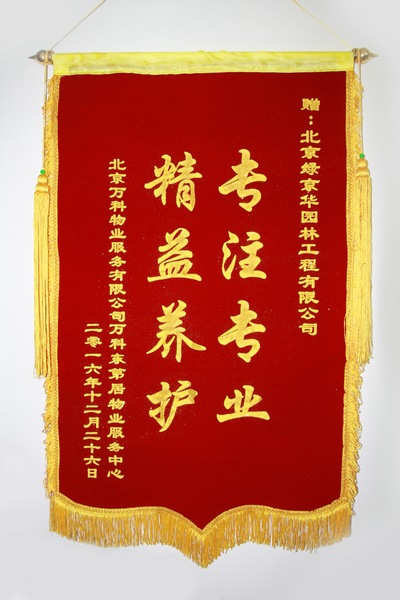 赠：北京绿京华园林工程有限公司
专注专业
精益养护
北京万科物业服务有限公司万科泰第居物业服务中心
二零一六年十二月二十六日